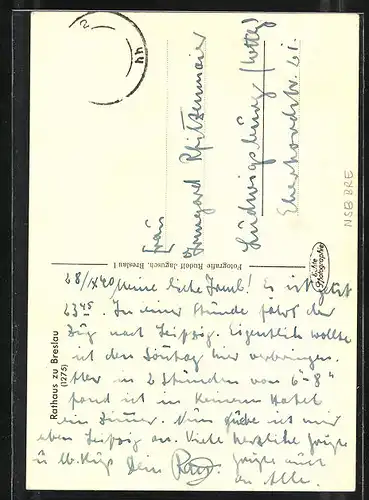 Frau
Irmgard Pfitzenmaier
Ludwigsburg (Wttbg)
Eberhardstr. 61.
Echte Photographie
NSB BRE
Fotografie Rudolf Jagusch, Breslau I
Rathaus zu Breslau
(1275)
28/IX 40 Meine liebe Irmb! Es ist jetzt
23 45. In einer Stunde fährt der
Zug nach Leipzig. Eigentlich wollte
ich den Sonntag hier verbringen.
Aber in 2 Stunden von 6 - 8 h
fand ich in keinem Hotel
ein Zimmer. Nun sehe ich mir
eben Leipzig an. Viele herzliche Grüße
u lb. Küß Dein
Grüße auch
an Alle.